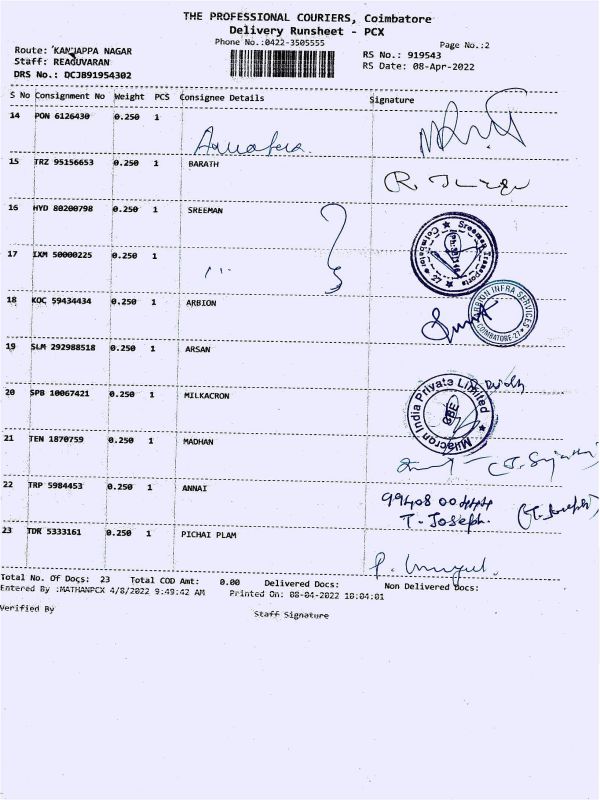 THE PROFESSIONAL COURIERS, Coimbatore
Delivery Runsheet - PCX
Phone No.:0422-3505555
Page No.:2
Route: KANNAPPA NAGAR
RS No.: 919543
Staff: REAGUVARAN
RS Date: 08-Apr-2022
DRS No.: DCJB91954302
S No Consignment No Weight PCS Consignee Details Signature
14 PON 6126430 0.250 1
15 TRZ 95156653 0.250 1 BARATH
16 HYD 80200798 0.250 1 SREEMAN
Sreeman Transports
Coimbatore
27
17 IXM 50000225 0.250 1
18 KOC 59434434 0.250 1 ARBION
ARBION INFRA SERVICES
COIMBATORE-27
19 SLM 292988518 0.250 1 ARSAN
20 SPB 10067421 0.250 1 MILKACRON
Milacron India Private Limited
21 TEN 1870759 0.250 1 MADHAN
22 TRP 5984453 0.250 1 ANNAI
99408 00444
T. Joseph. (T. Joseph)
23 TDR 5333161 0.250 1 PICHAI PLAM
Total No. Of Docs: 23 Total COD Amt: 0.00 Delivered Docs: Non Delivered Docs:
Entered By :MATHANPCX 4/8/2022 9:49:42 AM Printed On: 08-04-2022 10:04:01
Verified By Staff Signature